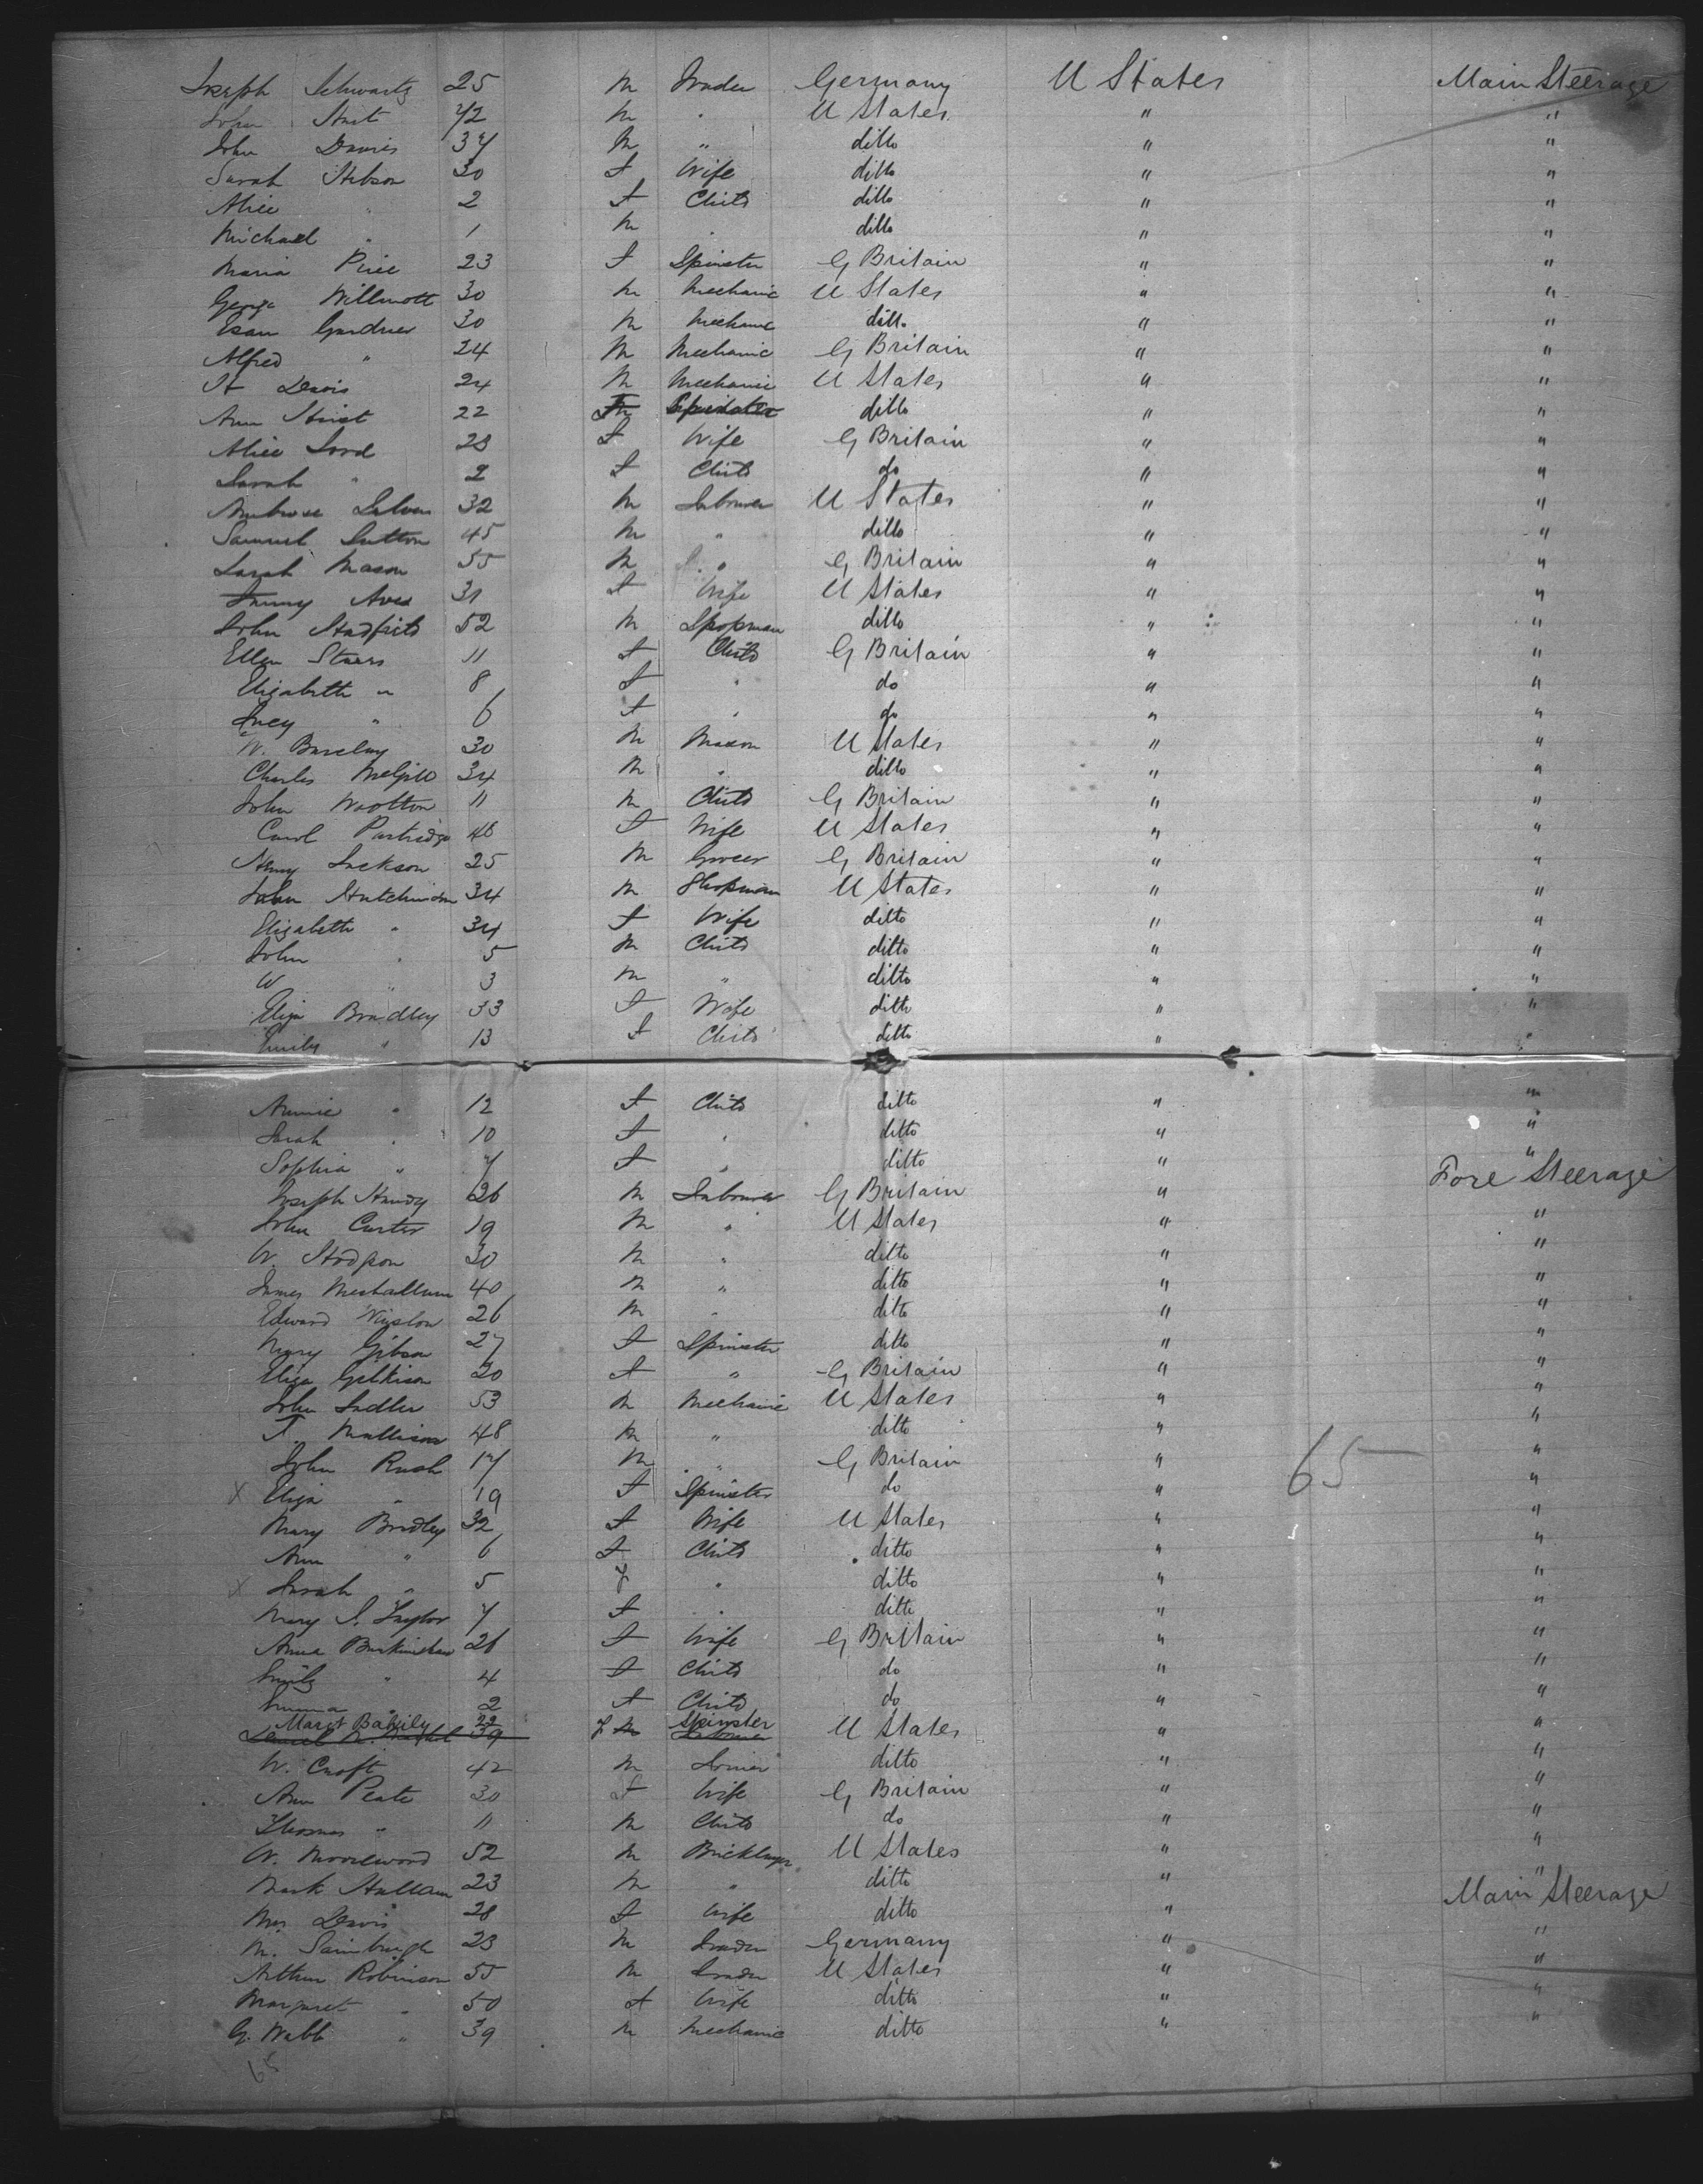 Joseph Schwartz 25 M Trader Germany U States Main Steerage
John 42 M " U States " "
John Davis 37 M " ditto " "
Sarah Hibson 30 F Wife ditto " "
Alice " 2 F Child ditto " "
Michael " 1 M " ditto " "
Maria Price 23 F Spinster G Britain " "
George Willmott 30 M Mechanic U States " "
Esau Gardner 30 M Mechanic ditto " "
Alfred " 24 M Mechanic G Britain " "
Davis 24 M Mechanic U States " "
Ann Hirst 22 F Spinster ditto " "
Alice Lord 23 F Wife G Britain " "
Sarah " 2 F Child do " "
Ambrose 32 M Labourer U States " "
Samuel Sutton 45 M " ditto " "
Sarah Mason 55 M " G Britain " "
Fanny Aves 31 F Wife U States " "
John Hadfield 52 M Shopman ditto " "
Ellen Stuars 11 F Child G Britain " "
Elizabeth " 8 F " do " "
Lucy " 6 F " do " "
W. Barclay 30 M Mason U States " "
Charles McGill 34 M " ditto " "
John Wootton 11 M Child G Britain " "
Carol Partridge 48 F Wife U States " "
Henry Jackson 25 M Grocer G Britain " "
John Hutchinson 34 M Shopman U States " "
Elizabeth " 34 F Wife ditto " "
John " 5 M Child ditto " "
W " 3 M " ditto " "
Eliza Bradley 33 F Wife ditto " "
Emily " 13 F Child ditto " "
Annie " 12 F Child ditto " "
Sarah " 10 F " ditto " "
Sophia " 7 F " ditto " "
Joseph Handy 26 M Labourer G Britain " Fore Steerage
John Carter 19 M " U States " "
W. Hodgson 30 M " ditto " "
James 40 M " ditto " "
Edward Winslow 26 M " ditto " "
Mary Gibson 27 F Spinster ditto " "
Eliza Gilkison 20 F " G Britain " "
John Sadler 53 M Mechanic U States " "
T. Mallison 48 M " ditto " "
John Rush 17 M " G Britain " "
X Eliza " 19 F Spinster do " 65 "
Mary Bradley 32 F Wife U States " "
Ann " 6 F Child ditto " "
X Sarah " 5 F " ditto " "
Mary S. Taylor 7 F " ditto " "
Anna Burkinshaw 26 F Wife G Britain " "
Emily " 4 F Child do " "
Emma " 2 F Child do " "
Margt Bakily 22 F Spinster U States " "
39 M Labourer
W. Croft 42 M Joiner ditto " "
Ann Peate 30 F Wife G Britain " "
Thomas " 11 M Child do " "
W. Moorewood 52 M Bricklayer U States " "
Mark Hallam 23 M " ditto " "
Mrs Davis 28 F Wife ditto " Main Steerage
M. Sainburgh 23 M Trader Germany " "
Arthur Robinson 55 M Trader U States " "
Margaret " 50 F Wife ditto " "
G. Webb " 39 M Mechanic ditto " "
65